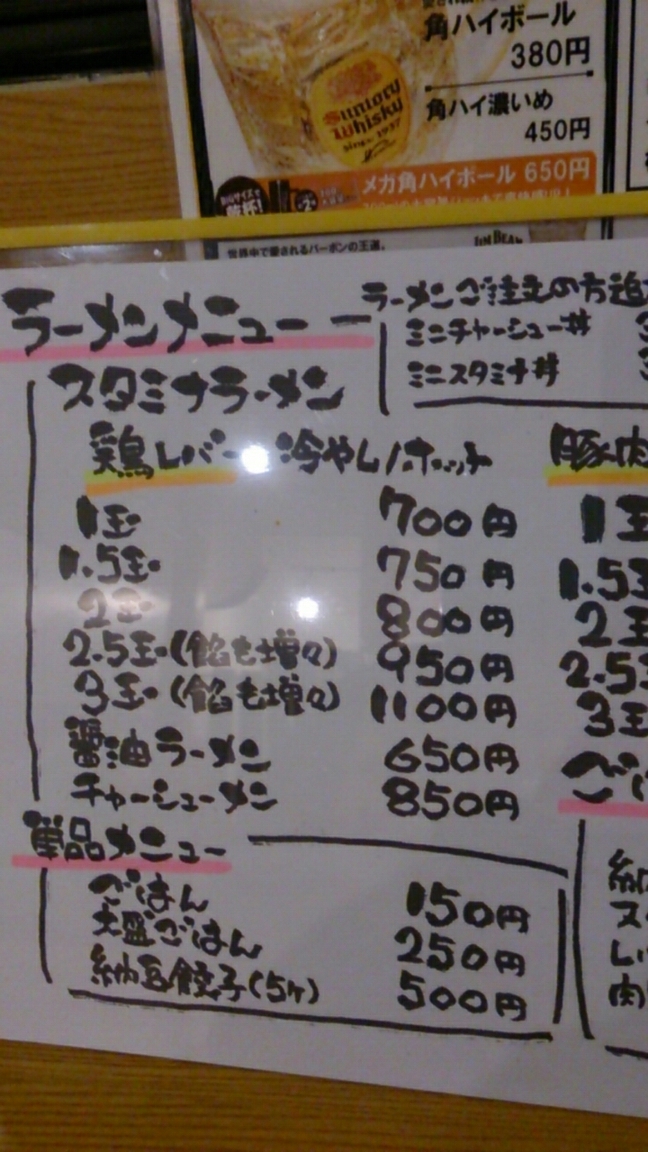 角ハイボール
380円
Suntory
Whisky
since 1937
角ハイ濃いめ
450円
メガ角ハイボール 650円
乾杯!
世界中で愛されるバーボンの王道。
JIM BEAM
ラーメンメニュー
ラーメンご注文の方追
ミニチャーシュー丼
ミニスタミナ丼
スタミナラーメン
鶏レバー 冷やし/ホット
1玉 700円
1.5玉 750円
2玉 800円
2.5玉(餡も増々) 950円
3玉(餡も増々) 1100円
醤油ラーメン 650円
チャーシューメン 850円
豚肉
1玉
1.5玉
2玉
2.5玉
3玉
単品メニュー
ごはん 150円
大盛ごはん 250円
納豆餃子(5ヶ) 500円
ご
納
ス
レ
肉